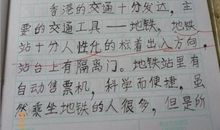 香港的交通十分发达，主
要的交通工具——地铁，地铁
站十分人性化的标着出入方向，
站台上有隔离门。地铁站里有
自动售票机，科学而便捷，虽
然乘坐地铁的人很多，但是所